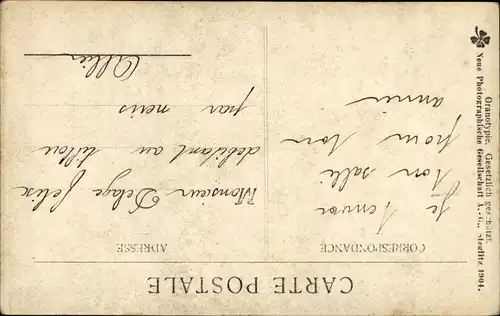 CARTE POSTALE
CORRESPONDANCE
ADRESSE
Je t'envoi
ton
pour ton
annee
Monsieur Delage felix
debitant au tilou
par neris
Allier
Oranotypie. Gesetzlich geschützt.
Neue Photographische Gesellschaft A.-G., Steglitz 1904.